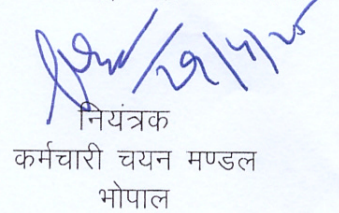 नियंत्रक
कर्मचारी चयन मण्डल
भोपाल